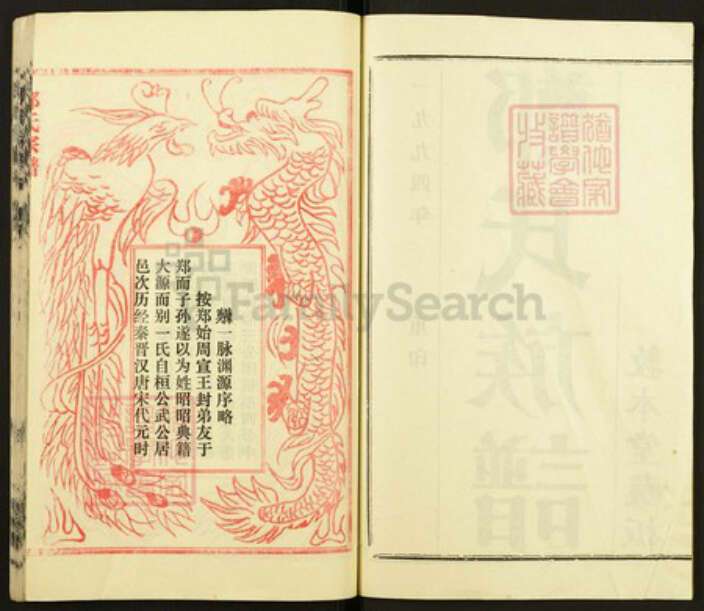 猶他家
譜學會
收藏
一脉渊源序略
按郑始周宣王封弟友于
郑而子孙遂以为姓昭昭典籍
大源而别一氏自桓公武公居
邑次历经秦晋汉唐宋代元时
郑氏宗谱
FamilySearch